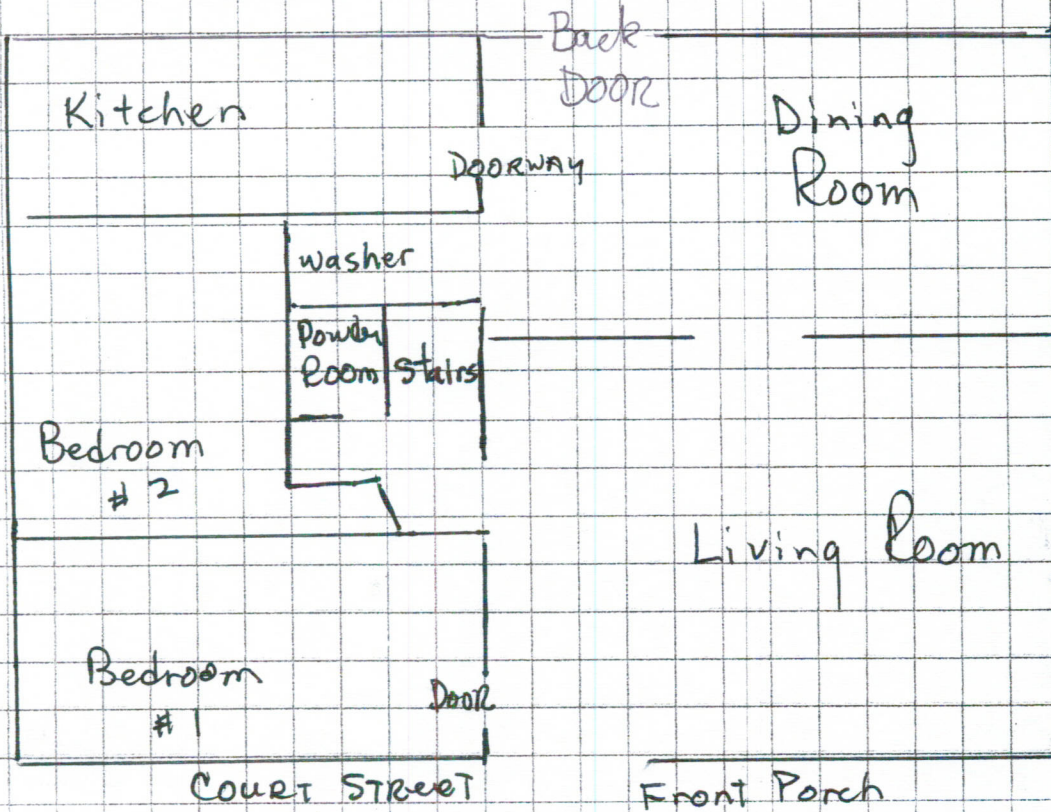 Back
DOOR
Kitchen
Dining
Room
DOORWAY
washer
Powder
Room
Stairs
Bedroom
# 2
Living Room
Bedroom
# 1
DOOR
COURT STREET
Front Porch